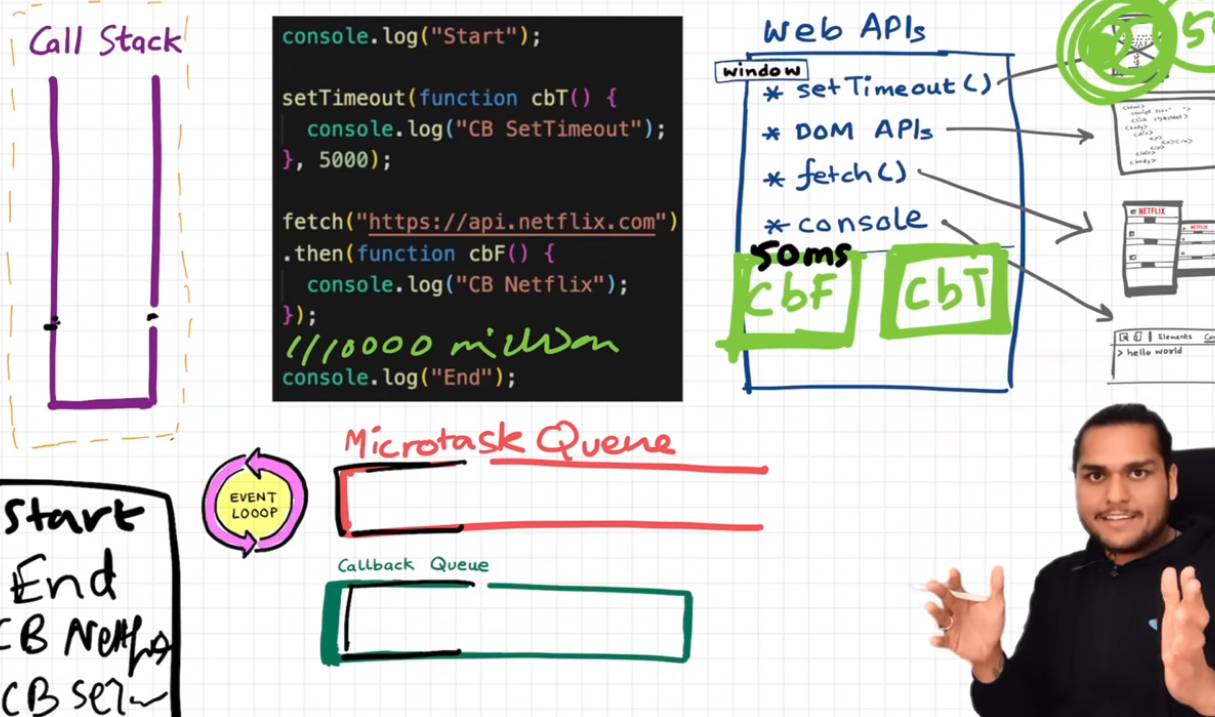 Call Stack
console.log("Start");
setTimeout(function cbT() {
console.log("CB SetTimeout");
}, 5000);
fetch("https://api.netflix.com")
.then(function cbF() {
console.log("CB Netflix");
});
console.log("End");
Web APIs
window
* setTimeout()
* DOM APIs
* fetch()
* console
50ms
cbF
cbT
NETFLIX
NETFLIX
Elements
> hello world
Microtask Queue
EVENT
LOOOP
Callback Queue
Start
End
CB Netflix
CB